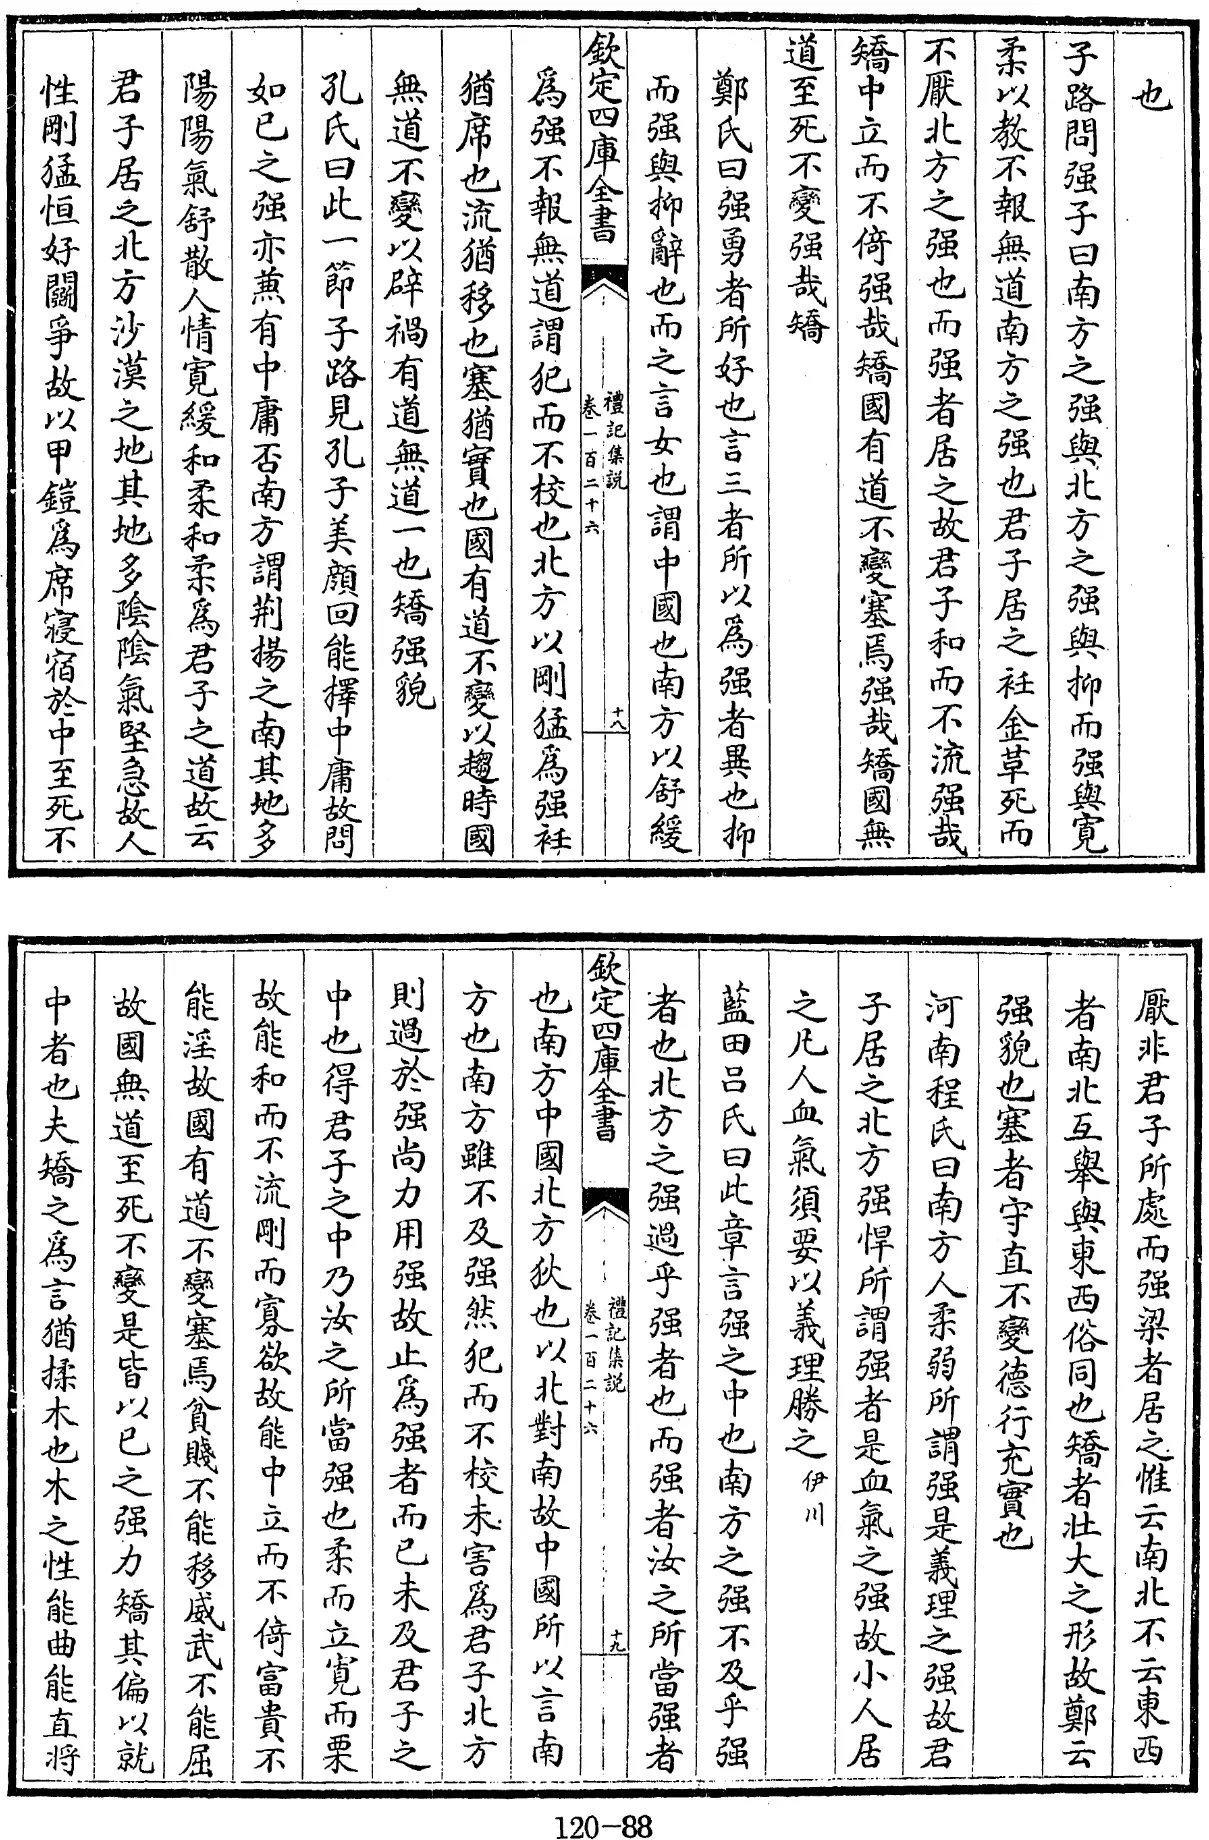 也
子路問强子曰南方之强與北方之强與抑而强與寛
柔以教不報無道南方之强也君子居之衽金革死而
不厭北方之强也而强者居之故君子和而不流强哉
矯中立而不倚强哉矯國有道不變塞焉强哉矯國無
道至死不變强哉矯
鄭氏曰强勇者所好也言三者所以為强者異也抑
而强與抑辭也而之言女也謂中國也南方以舒緩
欽定四庫全書
禮記集說
卷一百二十六
十八
為强不報無道謂犯而不校也北方以剛猛為强衽
猶席也流猶移也塞猶實也國有道不變以趨時國
無道不變以辟禍有道無道一也矯强貌
孔氏曰此一節子路見孔子美顔回能擇中庸故問
如已之强亦兼有中庸否南方謂荆揚之南其地多
陽陽氣舒散人情寛緩和柔和柔為君子之道故云
君子居之北方沙漠之地其地多陰陰氣堅急故人
性剛猛恒好鬭爭故以甲鎧為席寢宿於中至死不
厭非君子所處而强梁者居之惟云南北不云東西
者南北互舉與東西俗同也矯者壯大之形故鄭云
强貌也塞者守直不變德行充實也
河南程氏曰南方人柔弱所謂强是義理之强故君
子居之北方强悍所謂强者是血氣之强故小人居
之凡人血氣須要以義理勝之伊川
藍田呂氏曰此章言强之中也南方之强不及乎强
者也北方之强過乎强者也而强者汝之所當强者
欽定四庫全書
禮記集說
卷一百二十六
十九
也南方中國北方狄也以北對南故中國所以言南
方也南方雖不及强然犯而不校未害為君子北方
則過於强尚力用强故止為强者而已未及君子之
中也得君子之中乃汝之所當强也柔而立寛而栗
故能和而不流剛而寡欲故能中立而不倚富貴不
能淫故國有道不變塞焉貧賤不能移威武不能屈
故國無道至死不變是皆以已之强力矯其偏以就
中者也夫矯之為言猶揉木也木之性能曲能直將
120-88